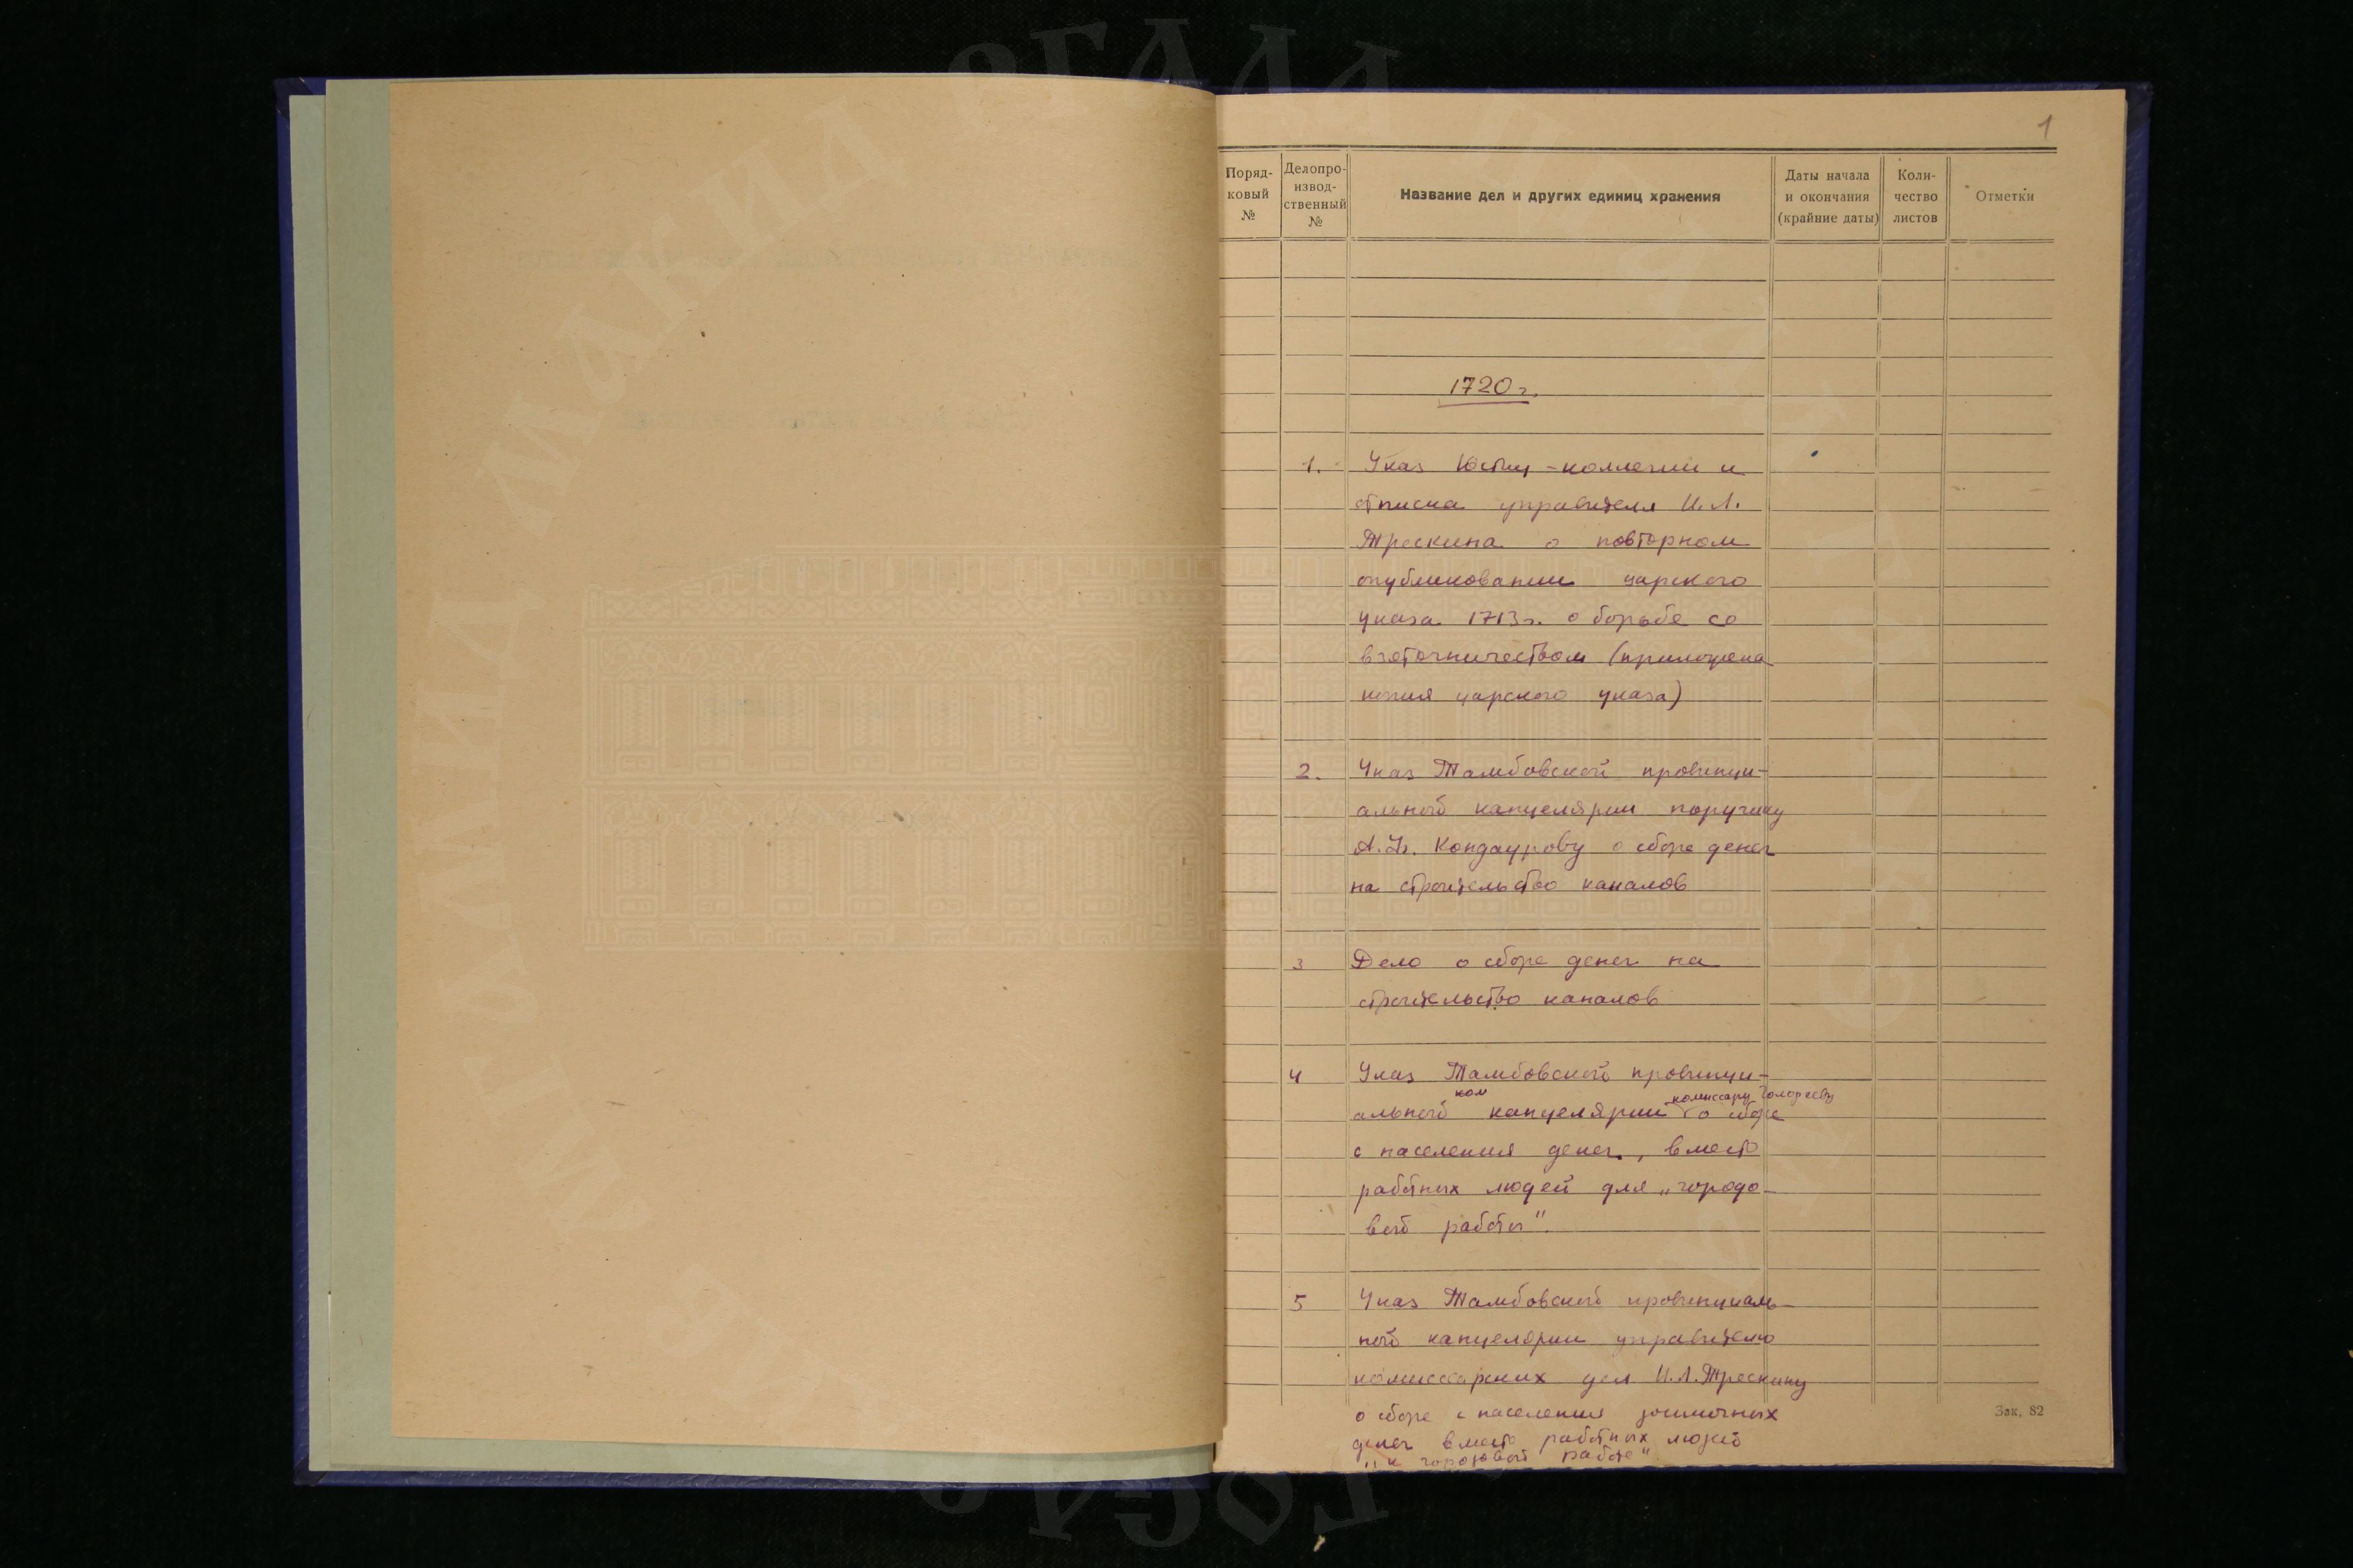 1
Поряд-
ковый
№
Делопро-
извод-
ственный
№
Название дел и других единиц хранения
Даты начала
и окончания
(крайние даты)
Коли-
чество
листов
Отметки
1720 г.
1. Указ Юстиц-коллегии и
отписка управителя И.Л.
Трескина о повторном
опубликовании царского
указа 1713 г. о борьбе со
взяточничеством (приложена
копия царского указа)
2. Указ Тамбовской провинци-
альной канцелярии поручику
Кондаурову о сборе денег
на строительство каналов
3 Дело о сборе денег на
строительство каналов
4 Указ Тамбовской провинци-
альной канцелярии комиссару о сборе
с населения денег, вместо
работных людей для „городо-
вой работы".
5 Указ Тамбовской провинциаль-
ной канцелярии управителю
комиссарских дел И.Л. Трескину
о сборе с населения
денег вместо работных людей
„к городовой работе"
Зак. 82